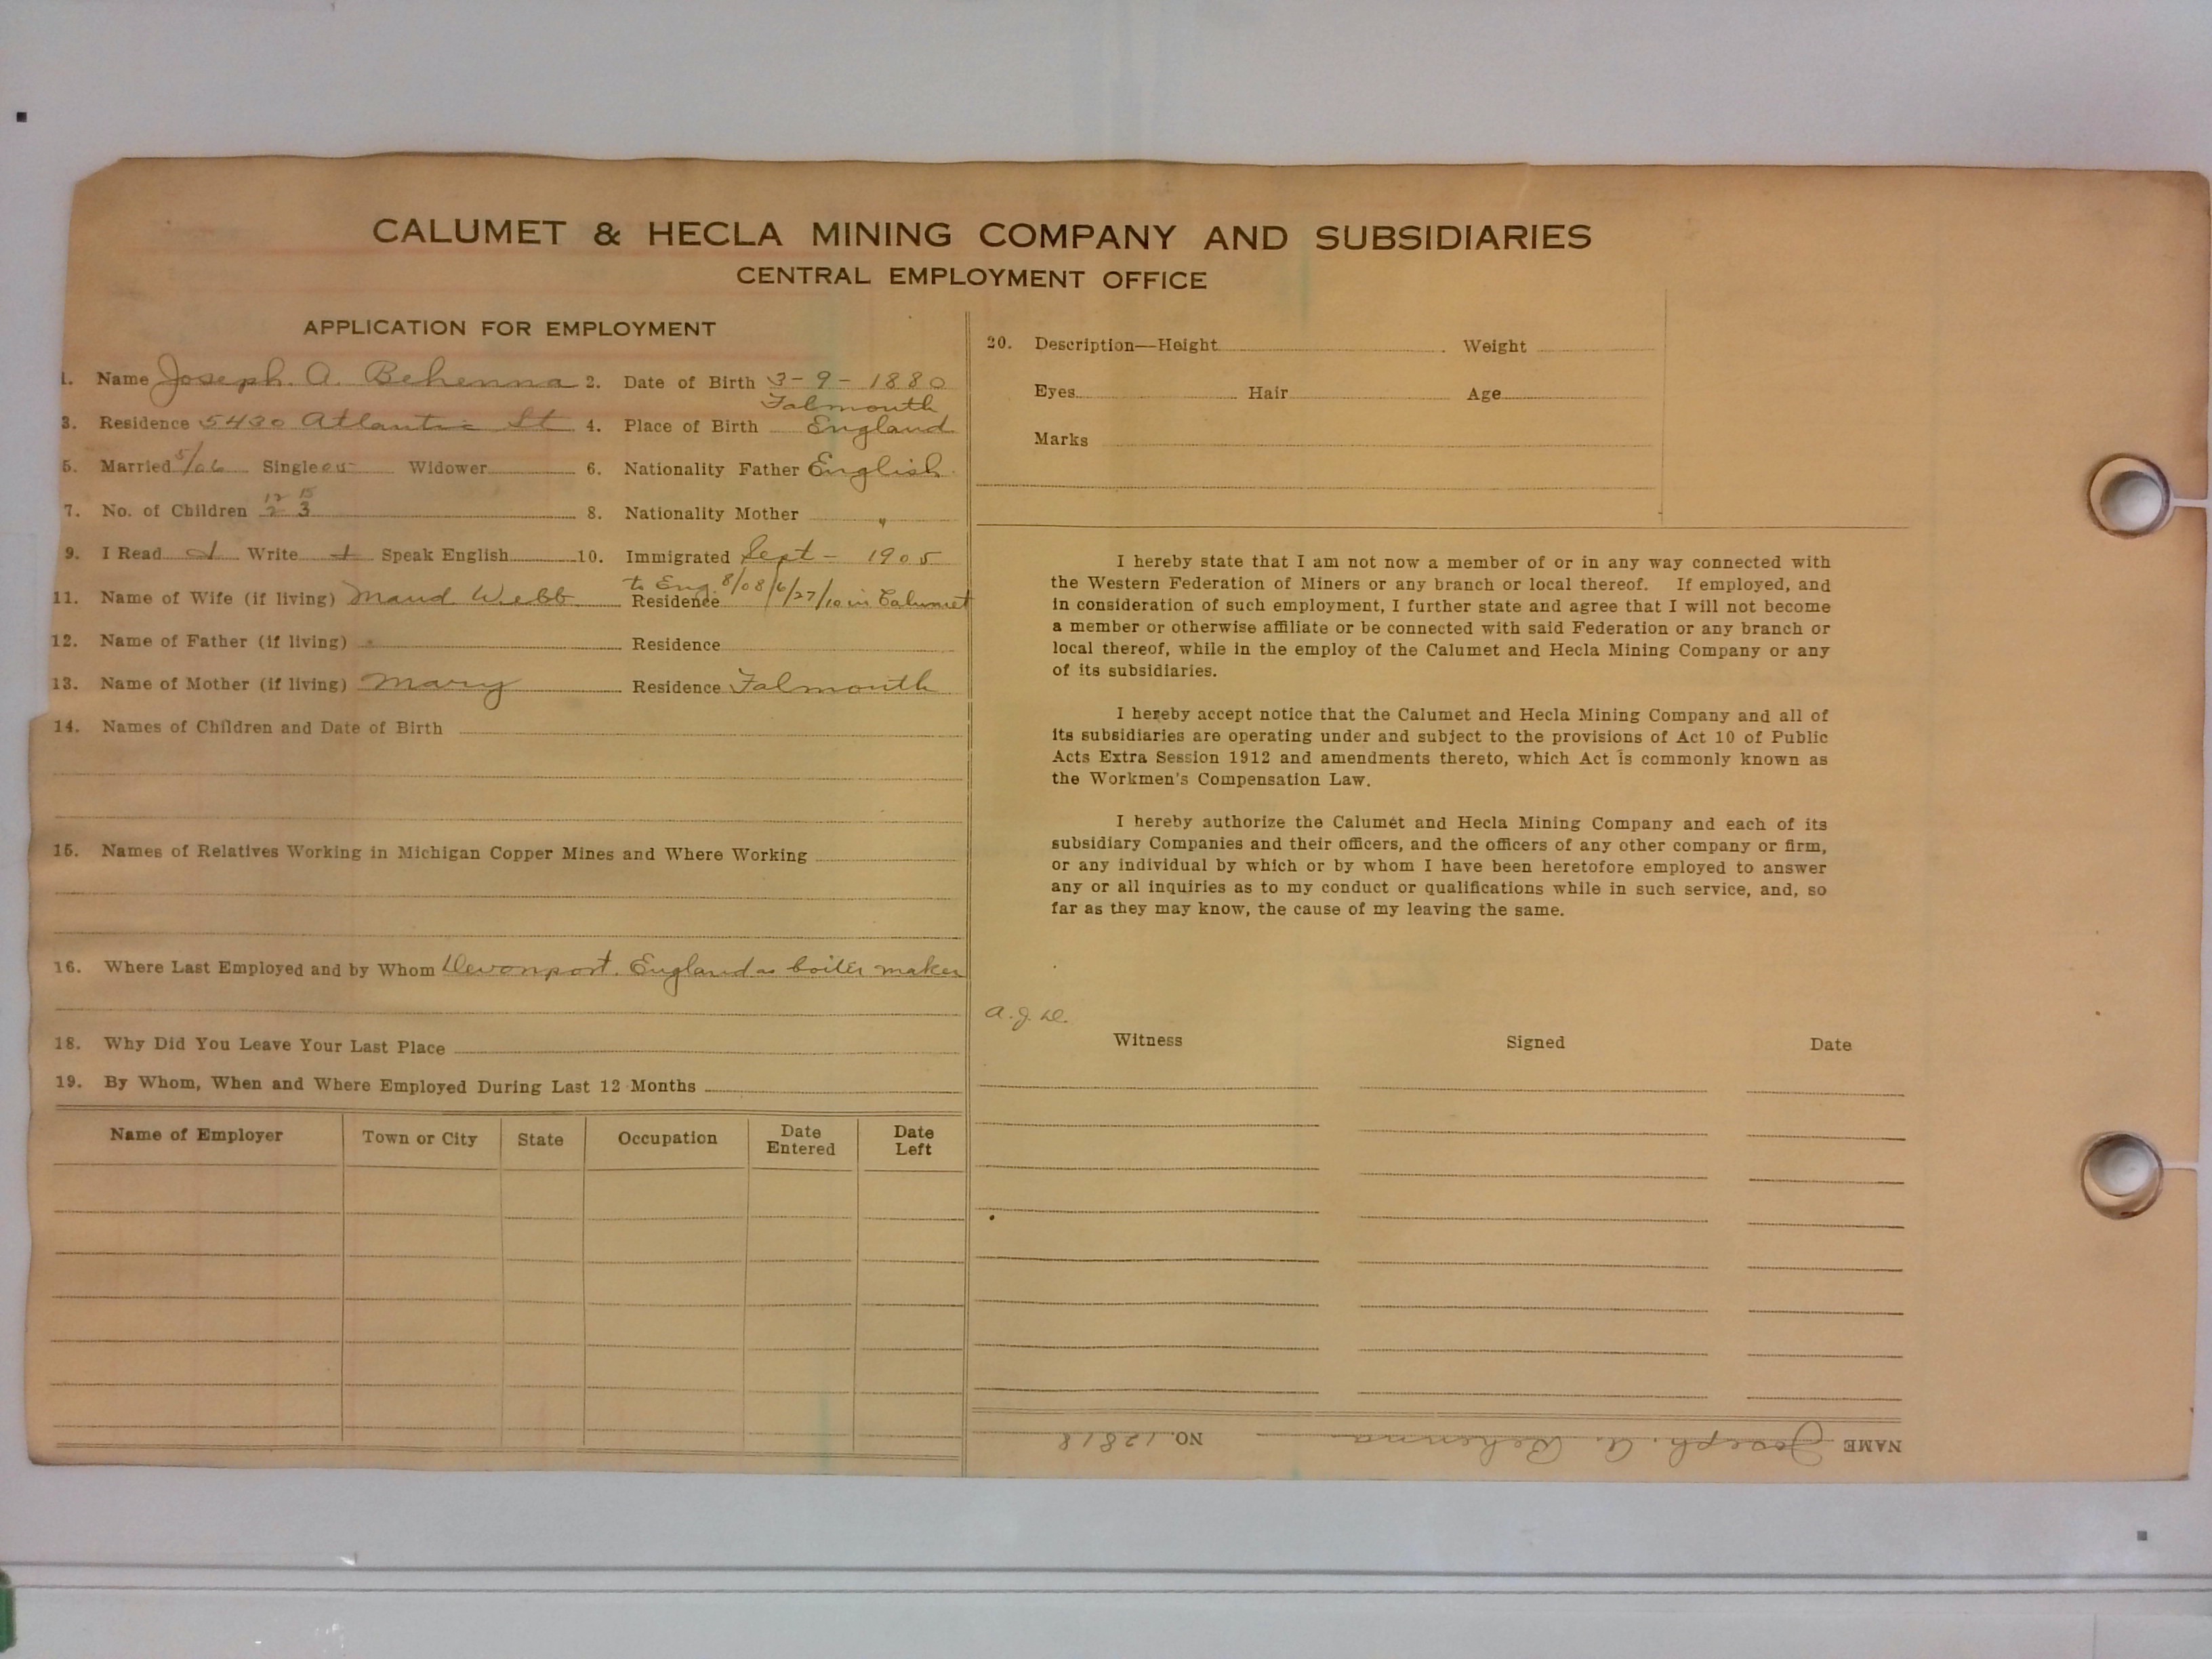 CALUMET & HECLA MINING COMPANY AND SUBSIDIARIES
CENTRAL EMPLOYMENT OFFICE
APPLICATION FOR EMPLOYMENT
1. Name Joseph. A. Behenna 2. Date of Birth 3-9-1880
Falmouth
3. Residence 5430 Atlantic St 4. Place of Birth England
5. Married 5/06 Single Widower 6. Nationality Father English
12 15
7. No. of Children 2 3 8. Nationality Mother "
9. I Read Write Speak English 10. Immigrated Sept - 1905
to Eng. 8/08/6/27/10 in Calumet
11. Name of Wife (if living) Maud Webb Residence
12. Name of Father (if living) Residence
13. Name of Mother (if living) Mary Residence Falmouth
14. Names of Children and Date of Birth
15. Names of Relatives Working in Michigan Copper Mines and Where Working
16. Where Last Employed and by Whom Devonport. England as boiler maker
18. Why Did You Leave Your Last Place
19. By Whom, When and Where Employed During Last 12 Months
Name of Employer Town or City State Occupation Date Entered Date Left
20. Description—Height Weight
Eyes Hair Age
Marks
I hereby state that I am not now a member of or in any way connected with
the Western Federation of Miners or any branch or local thereof. If employed, and
in consideration of such employment, I further state and agree that I will not become
a member or otherwise affiliate or be connected with said Federation or any branch or
local thereof, while in the employ of the Calumet and Hecla Mining Company or any
of its subsidiaries.
I hereby accept notice that the Calumet and Hecla Mining Company and all of
its subsidiaries are operating under and subject to the provisions of Act 10 of Public
Acts Extra Session 1912 and amendments thereto, which Act is commonly known as
the Workmen's Compensation Law.
I hereby authorize the Calumet and Hecla Mining Company and each of its
subsidiary Companies and their officers, and the officers of any other company or firm,
or any individual by which or by whom I have been heretofore employed to answer
any or all inquiries as to my conduct or qualifications while in such service, and, so
far as they may know, the cause of my leaving the same.
a.J.D.
Witness Signed Date
NAME Joseph. A. Behenna NO. 12818